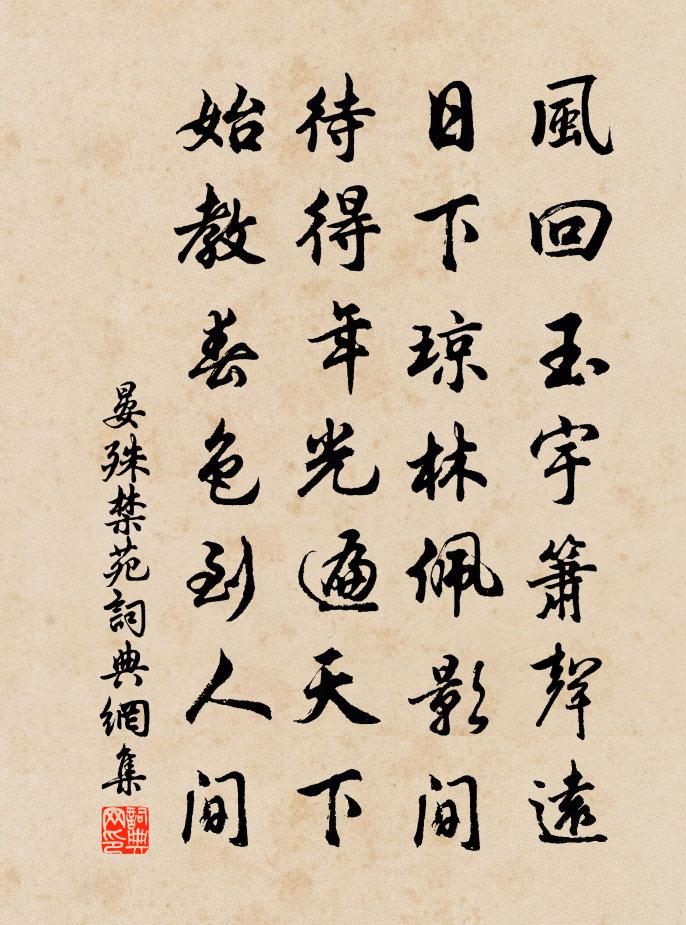 風回玉宇簫聲遠
日下琼林佩影間
待得年光遍天下
始教春色到人間
晏殊禁苑詞典網集
詞典網印